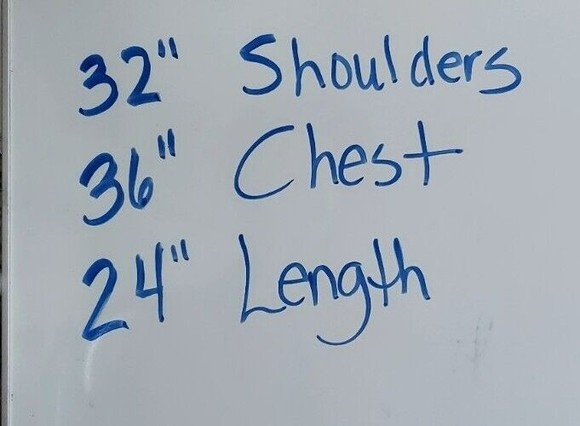 32" Shoulders
36" Chest
24" Length